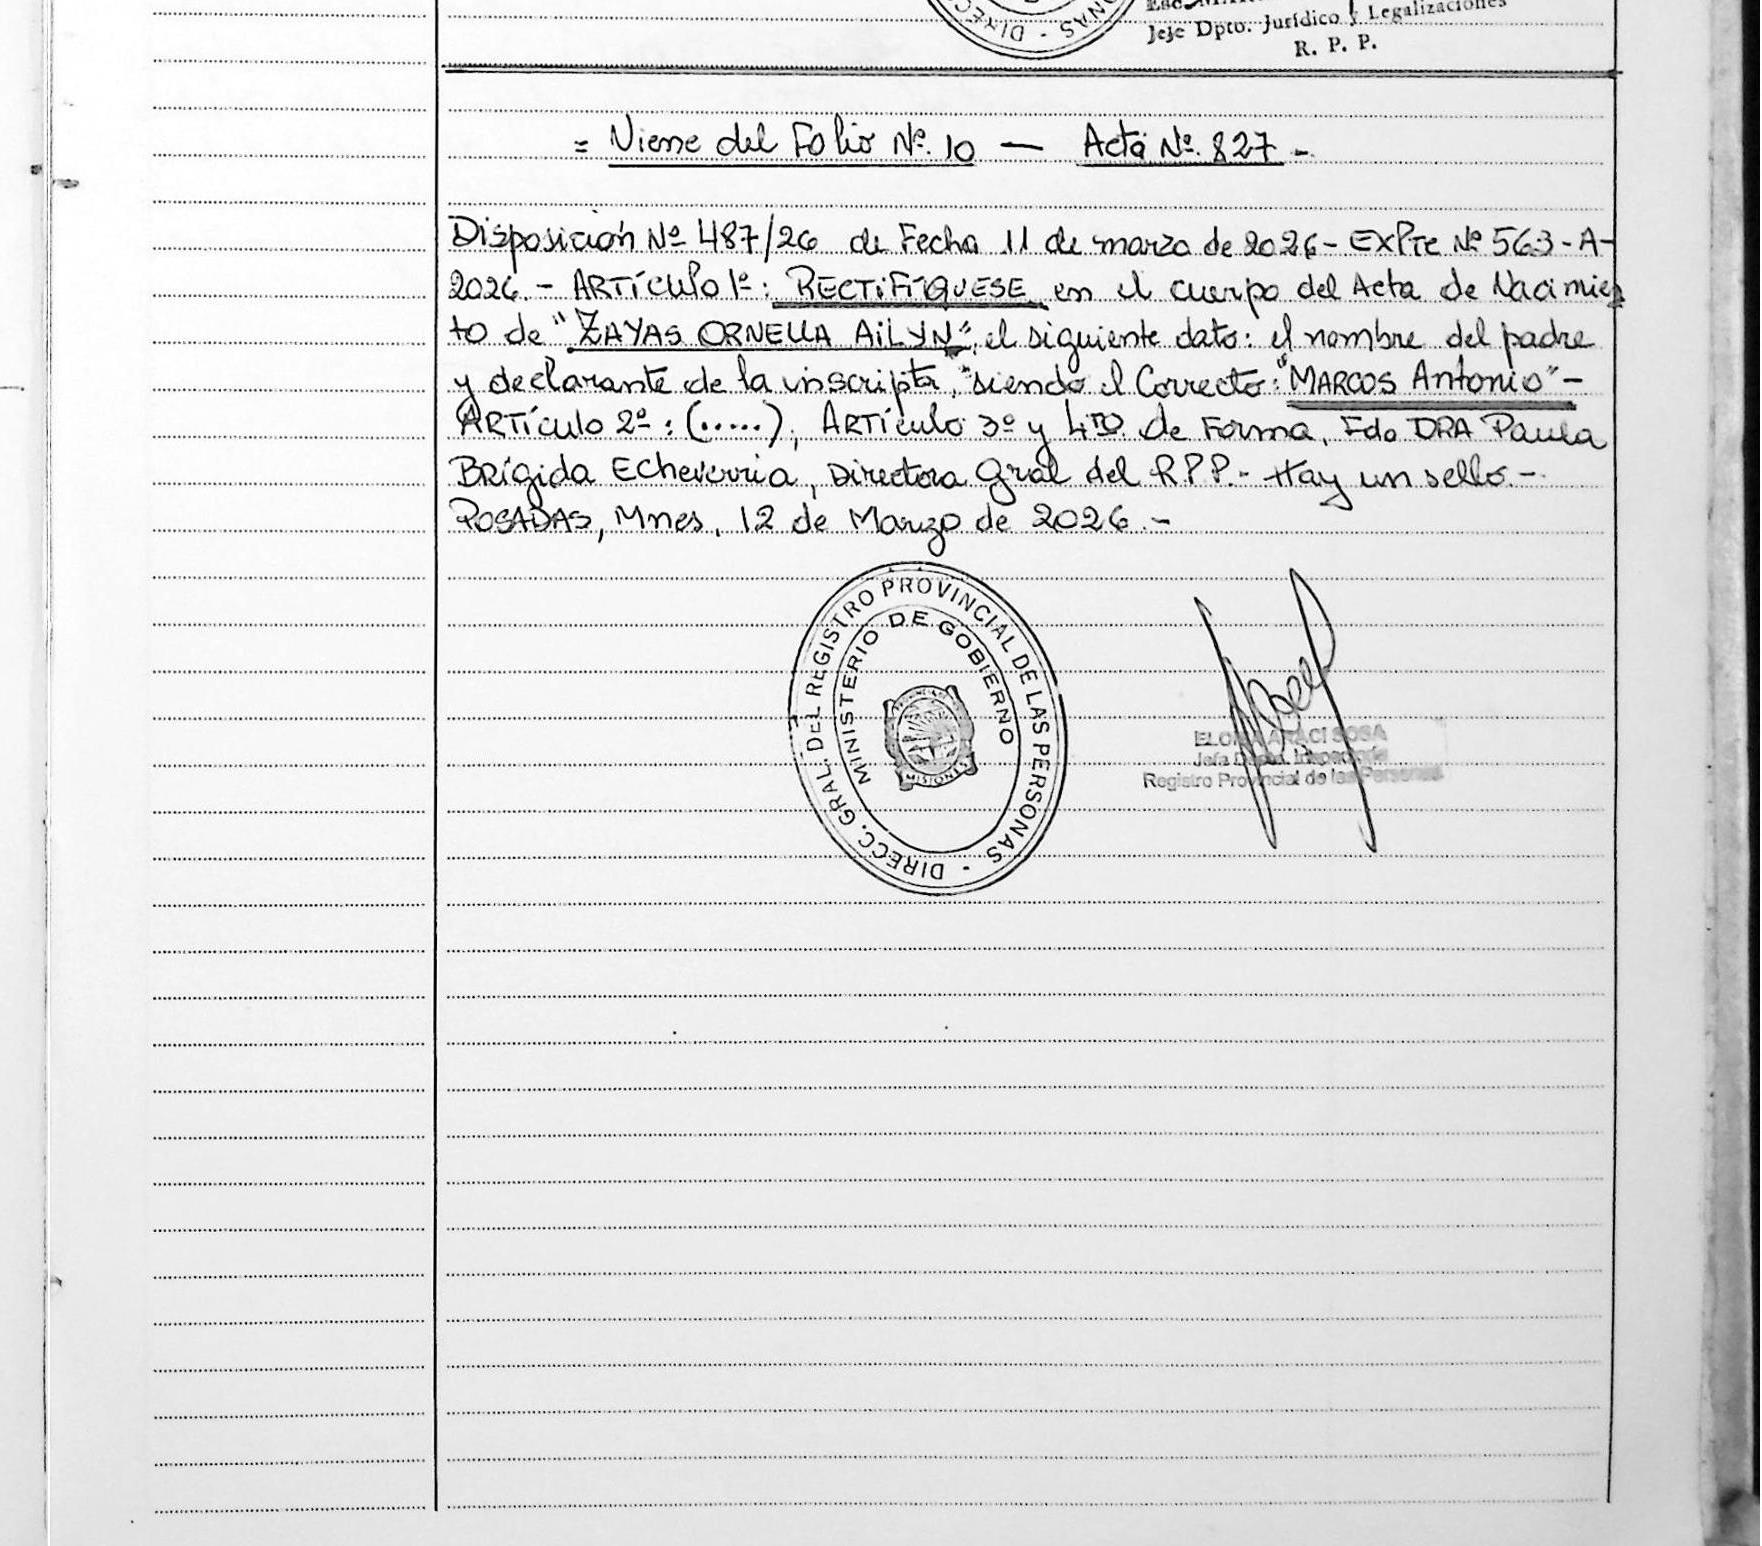 Jefe Dpto. Jurídico y Legalizaciones
R. P. P.
= Viene del Folio Nº. 10 — Acta Nº. 827 -
Disposición Nº 487/26 de Fecha 11 de marzo de 2026 - EXPte Nº 563 - A -
2026. - ARTÍCULO 1º: RECTIFÍQUESE en el cuerpo del Acta de Nacimien
to de "ZAYAS ORNELLA AILYN", el siguiente dato: el nombre del padre
y declarante de la inscripta, "siendo el Correcto: "MARCOS Antonio" -
ARTÍculo 2º: (.....), ARTÍculo 3º y 4TO. de Forma, Fdo DRA Paula
Brígida Echeverria, Directora Gral del R.P.P. - Hay un sello. -
POSADAS, Mnes, 12 de Marzo de 2026. -
DIRECC. GRAL. DEL REGISTRO PROVINCIAL DE LAS PERSONAS -
MINISTERIO DE GOBIERNO
MISIONES
ARACI SOSA
Jefa
Registro Provincial de las Personas